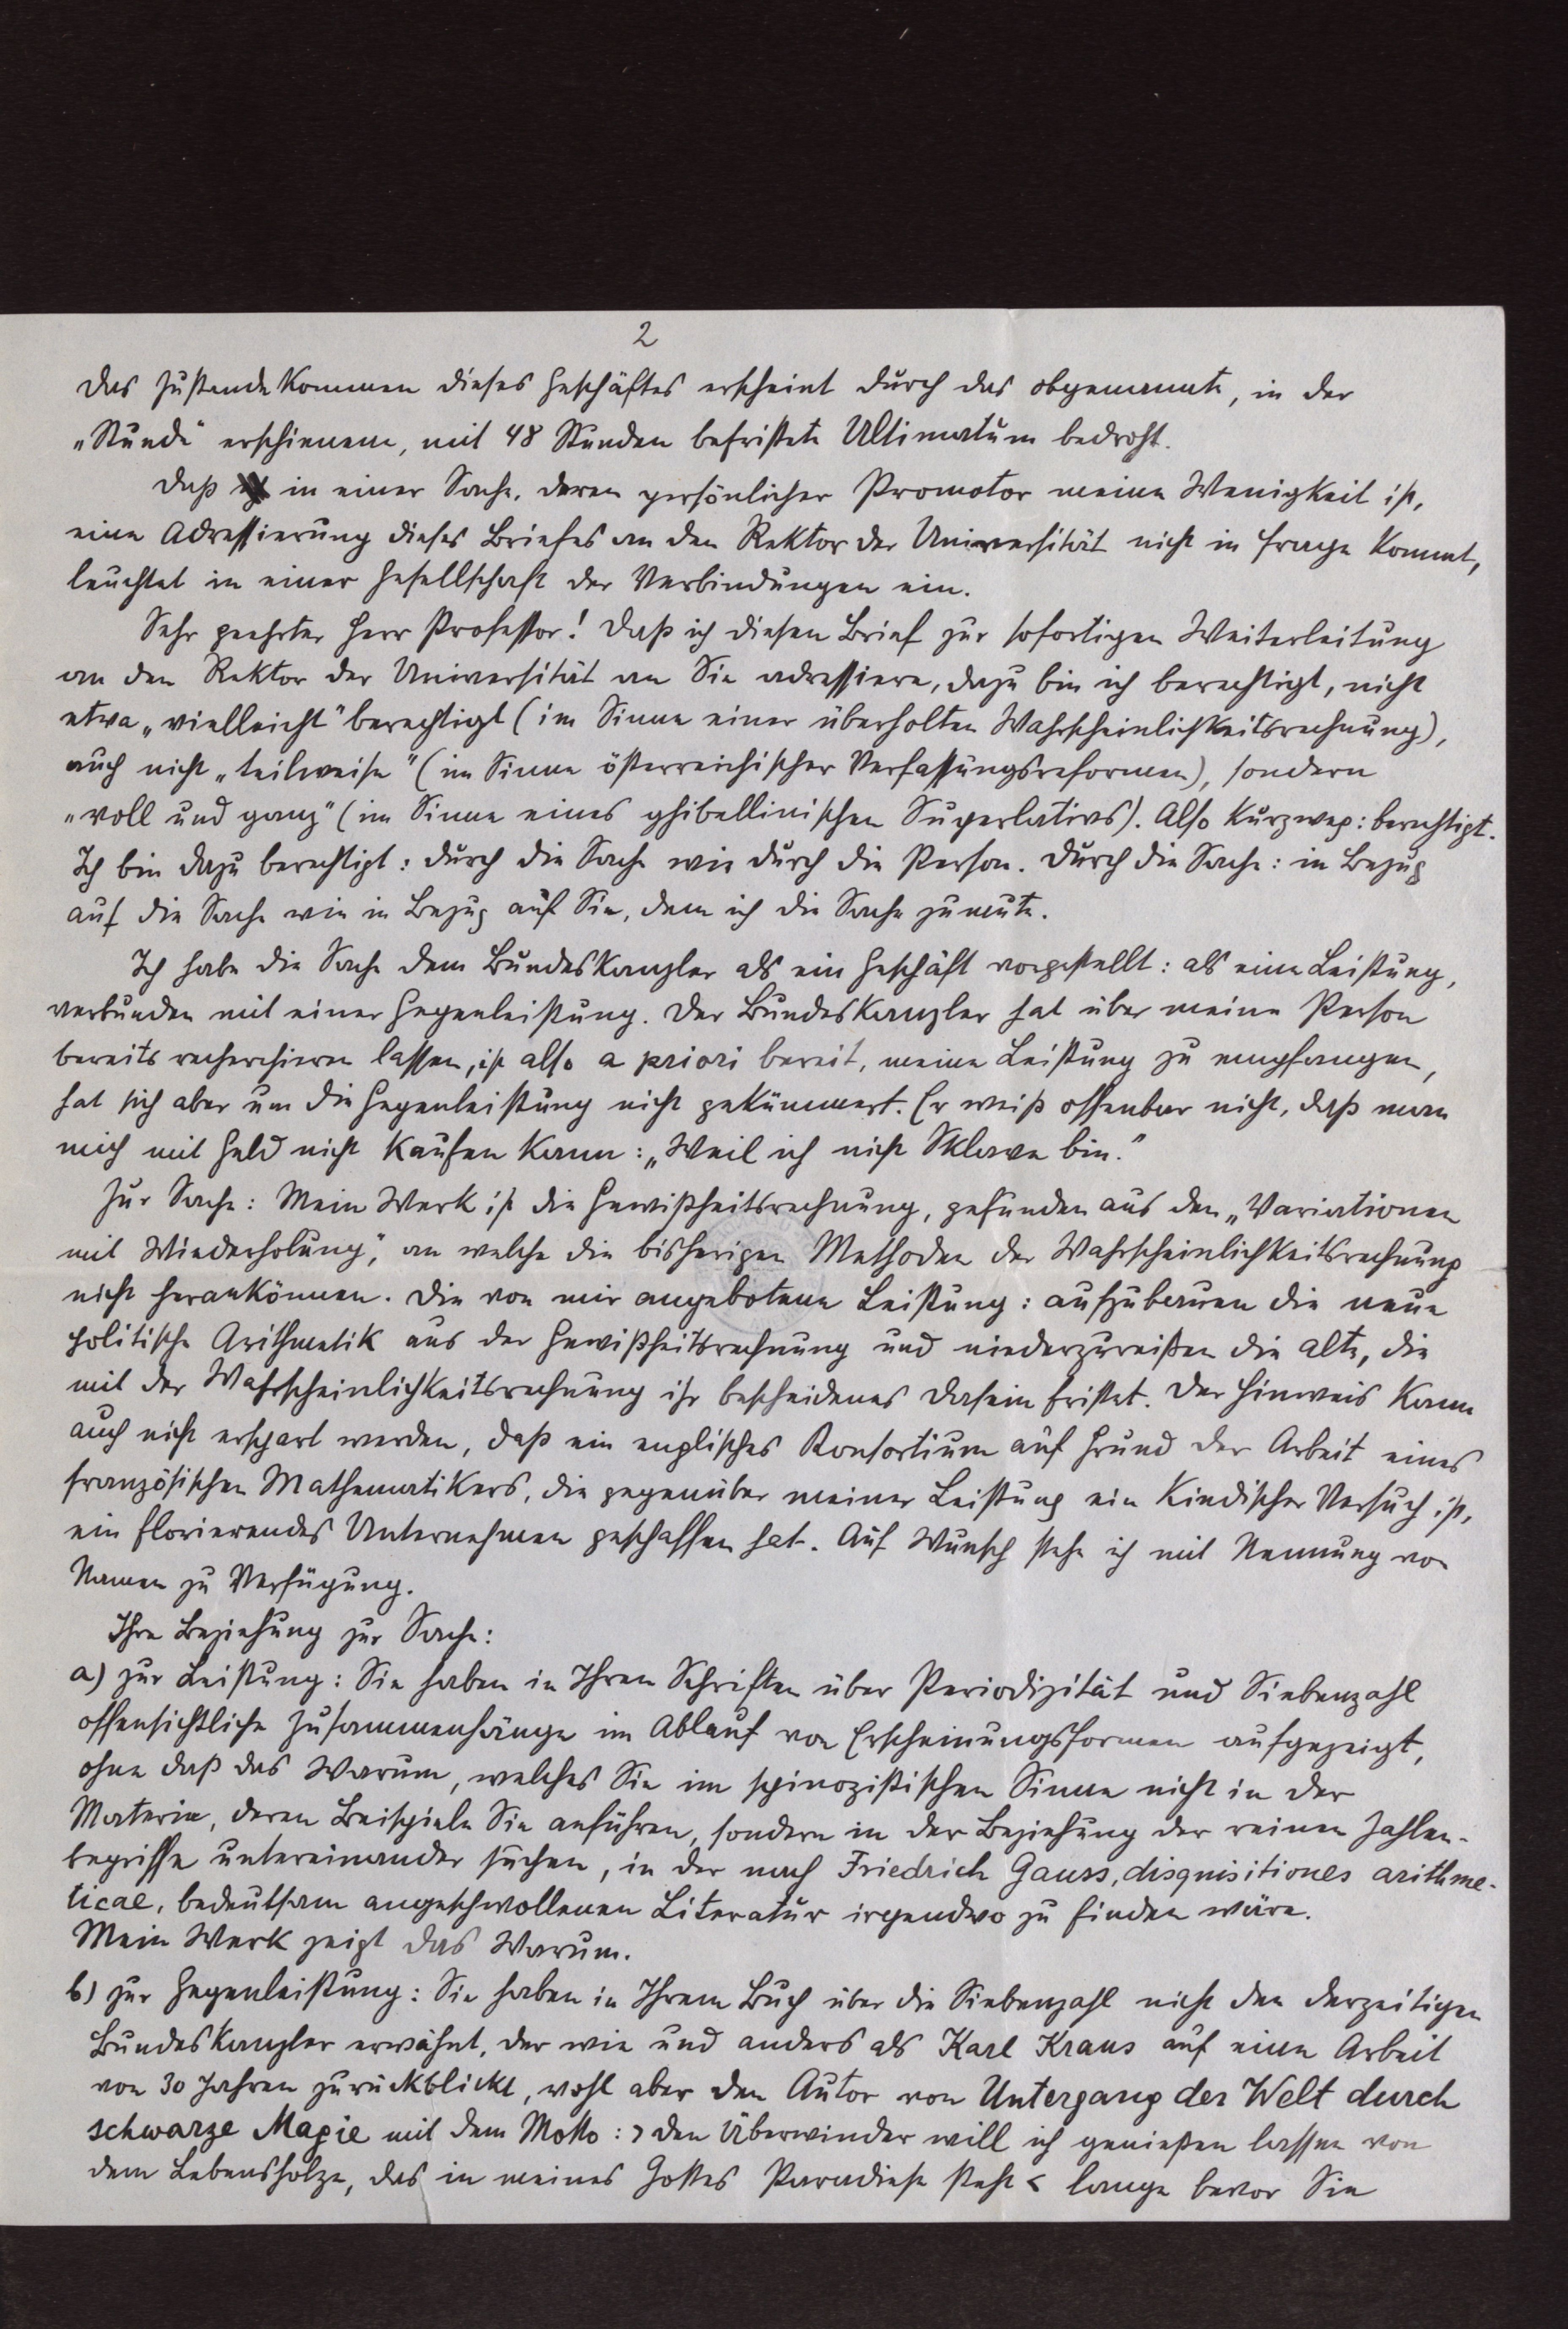 2
Das Zustandekommen dieses Geschäftes erscheint durch das obgenannte, in der
„Stunde" erschienene, mit 48 Stunden befristete Ultimatum bedroht.
Daß in einer Sache, deren persönlicher Promotor meine Wenigkeit ist,
eine Adressierung dieses Briefes an den Rektor der Universität nicht in Frage kommt,
leuchtet in einer Gesellschaft der Verbindungen ein.
Sehr geehrter Herr Professor! Daß ich diesen Brief zur sofortigen Weiterleitung
an den Rektor der Universität an Sie adressiere, dazu bin ich berechtigt, nicht
etwa „vielleicht" berechtigt (im Sinne einer überholten Wahrscheinlichkeitsrechnung),
auch nicht „teilweise" (im Sinne österreichischer Verfassungsreformen), sondern
„voll und ganz" (im Sinne eines ghibellinischen Superlativs). Also kurzweg: berechtigt.
Ich bin dazu berechtigt: durch die Sache wie durch die Person. Durch die Sache: in Bezug
auf die Sache wie in Bezug auf Sie, dem ich die Sache zumute.
Ich habe die Sache dem Bundeskanzler als ein Geschäft vorgestellt: als eine Leistung,
verbunden mit einer Gegenleistung. Der Bundeskanzler hat über meine Person
bereits recherchieren lassen, ist also a priori bereit, meine Leistung zu empfangen,
hat sich aber um die Gegenleistung nicht gekümmert. Er weiß offenbar nicht, daß man
mich mit Geld nicht kaufen kann: „Weil ich nicht Sklave bin."
Zur Sache: Mein Werk ist die Gewißheitsrechnung, gefunden aus den „Variationen
mit Wiederholung", an welche die bisherigen Methoden der Wahrscheinlichkeitsrechnung
nicht herankönnen. Die von mir angebotene Leistung: aufzubauen die neue
politische Arithmetik aus der Gewißheitsrechnung und niederzureißen die alte, die
mit der Wahrscheinlichkeitsrechnung ihr bescheidenes Dasein fristet. Der Hinweis kann
auch nicht erspart werden, daß ein englisches Konsortium auf Grund der Arbeit eines
französischen Mathematikers, die gegenüber meiner Leistung ein kindischer Versuch ist,
ein florierendes Unternehmen geschaffen hat. Auf Wunsch stehe ich mit Nennung von
Namen zu Verfügung.
Ihre Beziehung zur Sache:
a) zur Leistung: Sie haben in Ihren Schriften über Periodizität und Siebenzahl
offensichtliche Zusammenhänge im Ablauf von Erscheinungsformen aufgezeigt,
ohne daß das Warum, welches Sie im spinozistischen Sinne nicht in der
Materie, deren Beispiele Sie anführen, sondern in der Beziehung der reinen Zahlen-
begriffe untereinander suchen, in der nach Friedrich Gauss, disquisitiones arithme-
ticae, bedeutsam angeschwollenen Literatur irgendwo zu finden wäre.
Mein Werk zeigt das Warum.
b) zur Gegenleistung: Sie haben in Ihrem Buch über die Siebenzahl nicht den derzeitigen
Bundeskanzler erwähnt, der wie und anders als Karl Kraus auf eine Arbeit
von 30 Jahren zurückblickt, wohl aber den Autor von Untergang der Welt durch
schwarze Magie mit dem Motto: >Den Überwinder will ich genießen lassen von
dem Lebensholze, das in meines Gottes Paradiese steht< lange bevor Sie